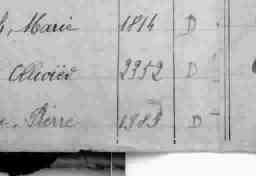 h, Marie 1814 D
Ollivier 2352 D
e, Pierre 1983 D